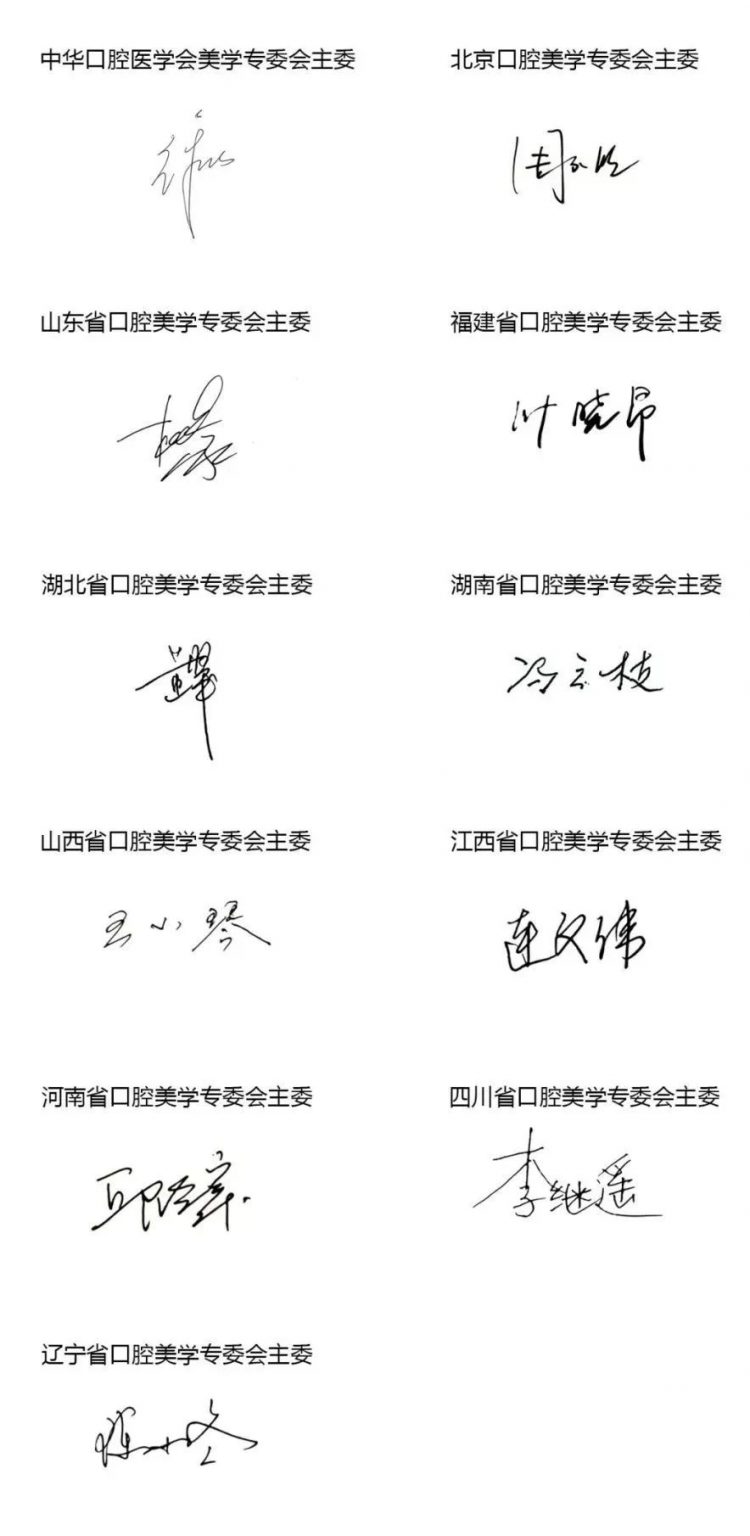 中华口腔医学会美学专委会主委
北京口腔美学专委会主委
山东省口腔美学专委会主委
福建省口腔美学专委会主委
叶晓昂
湖北省口腔美学专委会主委
湖南省口腔美学专委会主委
冯云枝
山西省口腔美学专委会主委
江西省口腔美学专委会主委
王小琴
连文伟
河南省口腔美学专委会主委
四川省口腔美学专委会主委
李继遥
辽宁省口腔美学专委会主委